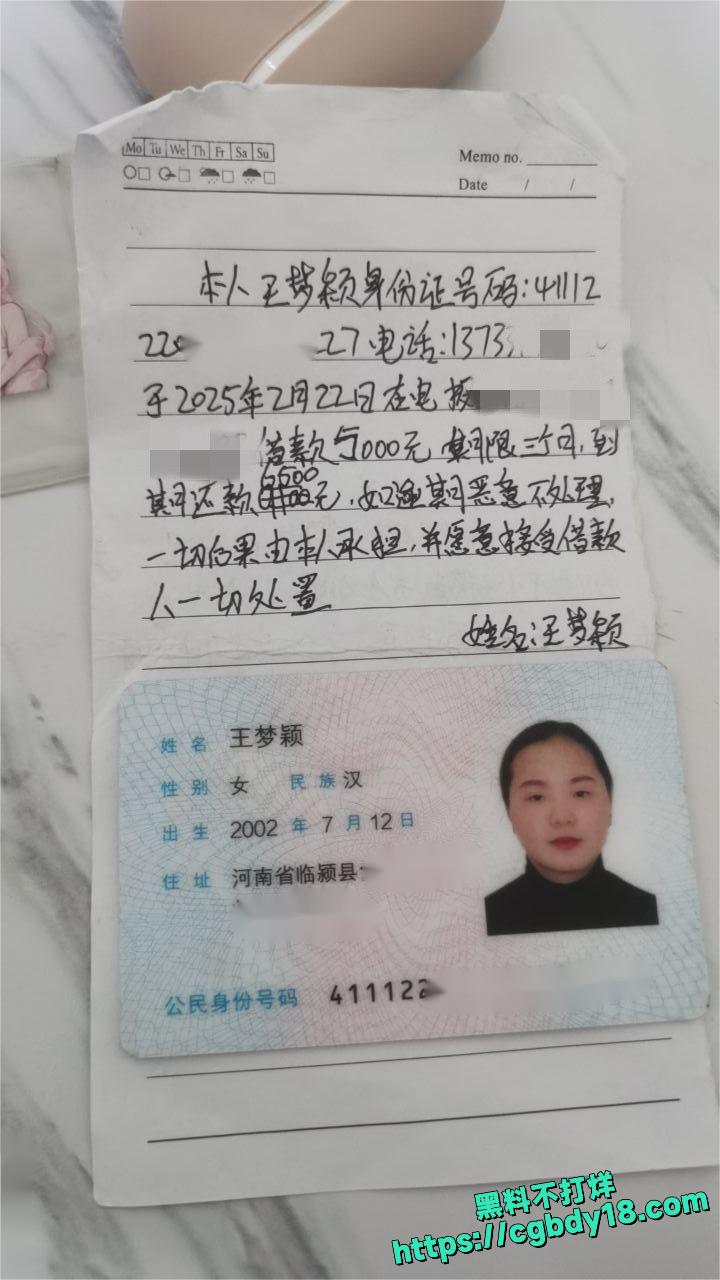 Mo Tu We Th Fr Sa Su
Memo no.
Date / /
本人王梦颖身份证号码:41112
22 27电话:1373
于2025年2月22日在电
借款5000元 期限三个月,到
6500
期还款元,如逾期恶意不处理,
一切后果由本人承担,并愿意接受借款
人一切处置
姓名:王梦颖
姓名 王梦颖
性别 女 民族 汉
出生 2002 年 7 月 12 日
住址 河南省临颍县
公民身份号码 411122
黑料不打烊
https://cgbdy18.com